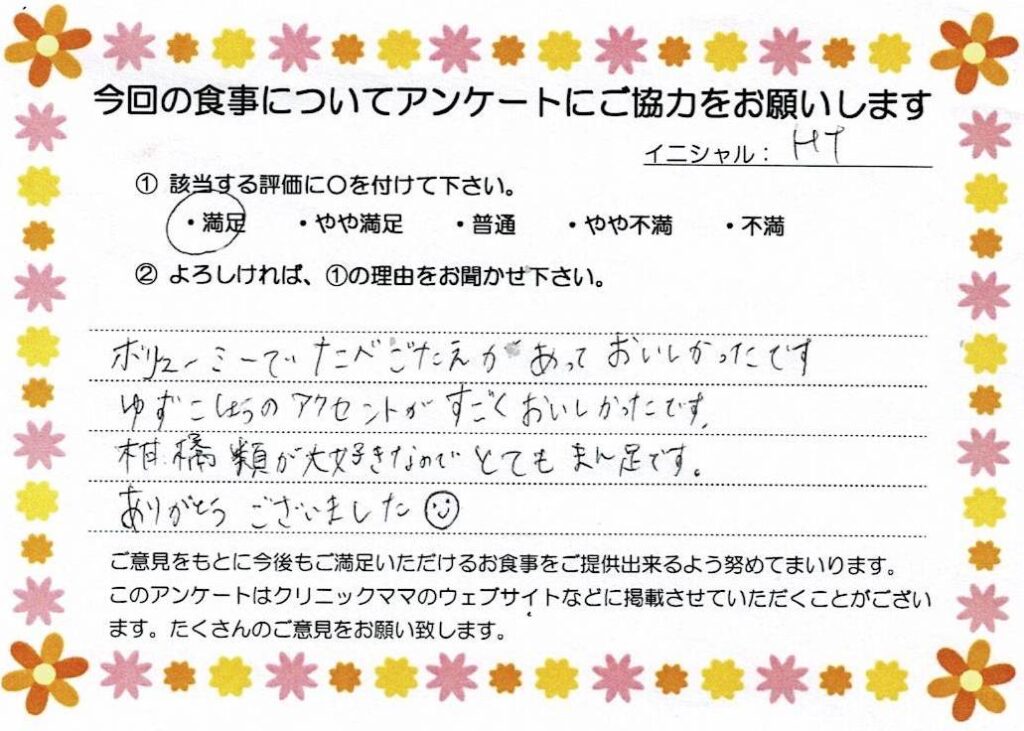 今回の食事についてアンケートにご協力をお願いします
イニシャル： HT
① 該当する評価に〇を付けて下さい。
・満足 ・やや満足 ・普通 ・やや不満 ・不満
② よろしければ、①の理由をお聞かせ下さい。
ボリューミーで たべごたえが あって おいしかったです
ゆずこしょうの アクセントが すごく おいしかったです。
柑橘類が大好きなので とても まん足です。
ありがとう ございました
ご意見をもとに今後もご満足いただけるお食事をご提供出来るよう努めてまいります。
このアンケートはクリニックママのウェブサイトなどに掲載させていただくことがござい
ます。たくさんのご意見をお願い致します。